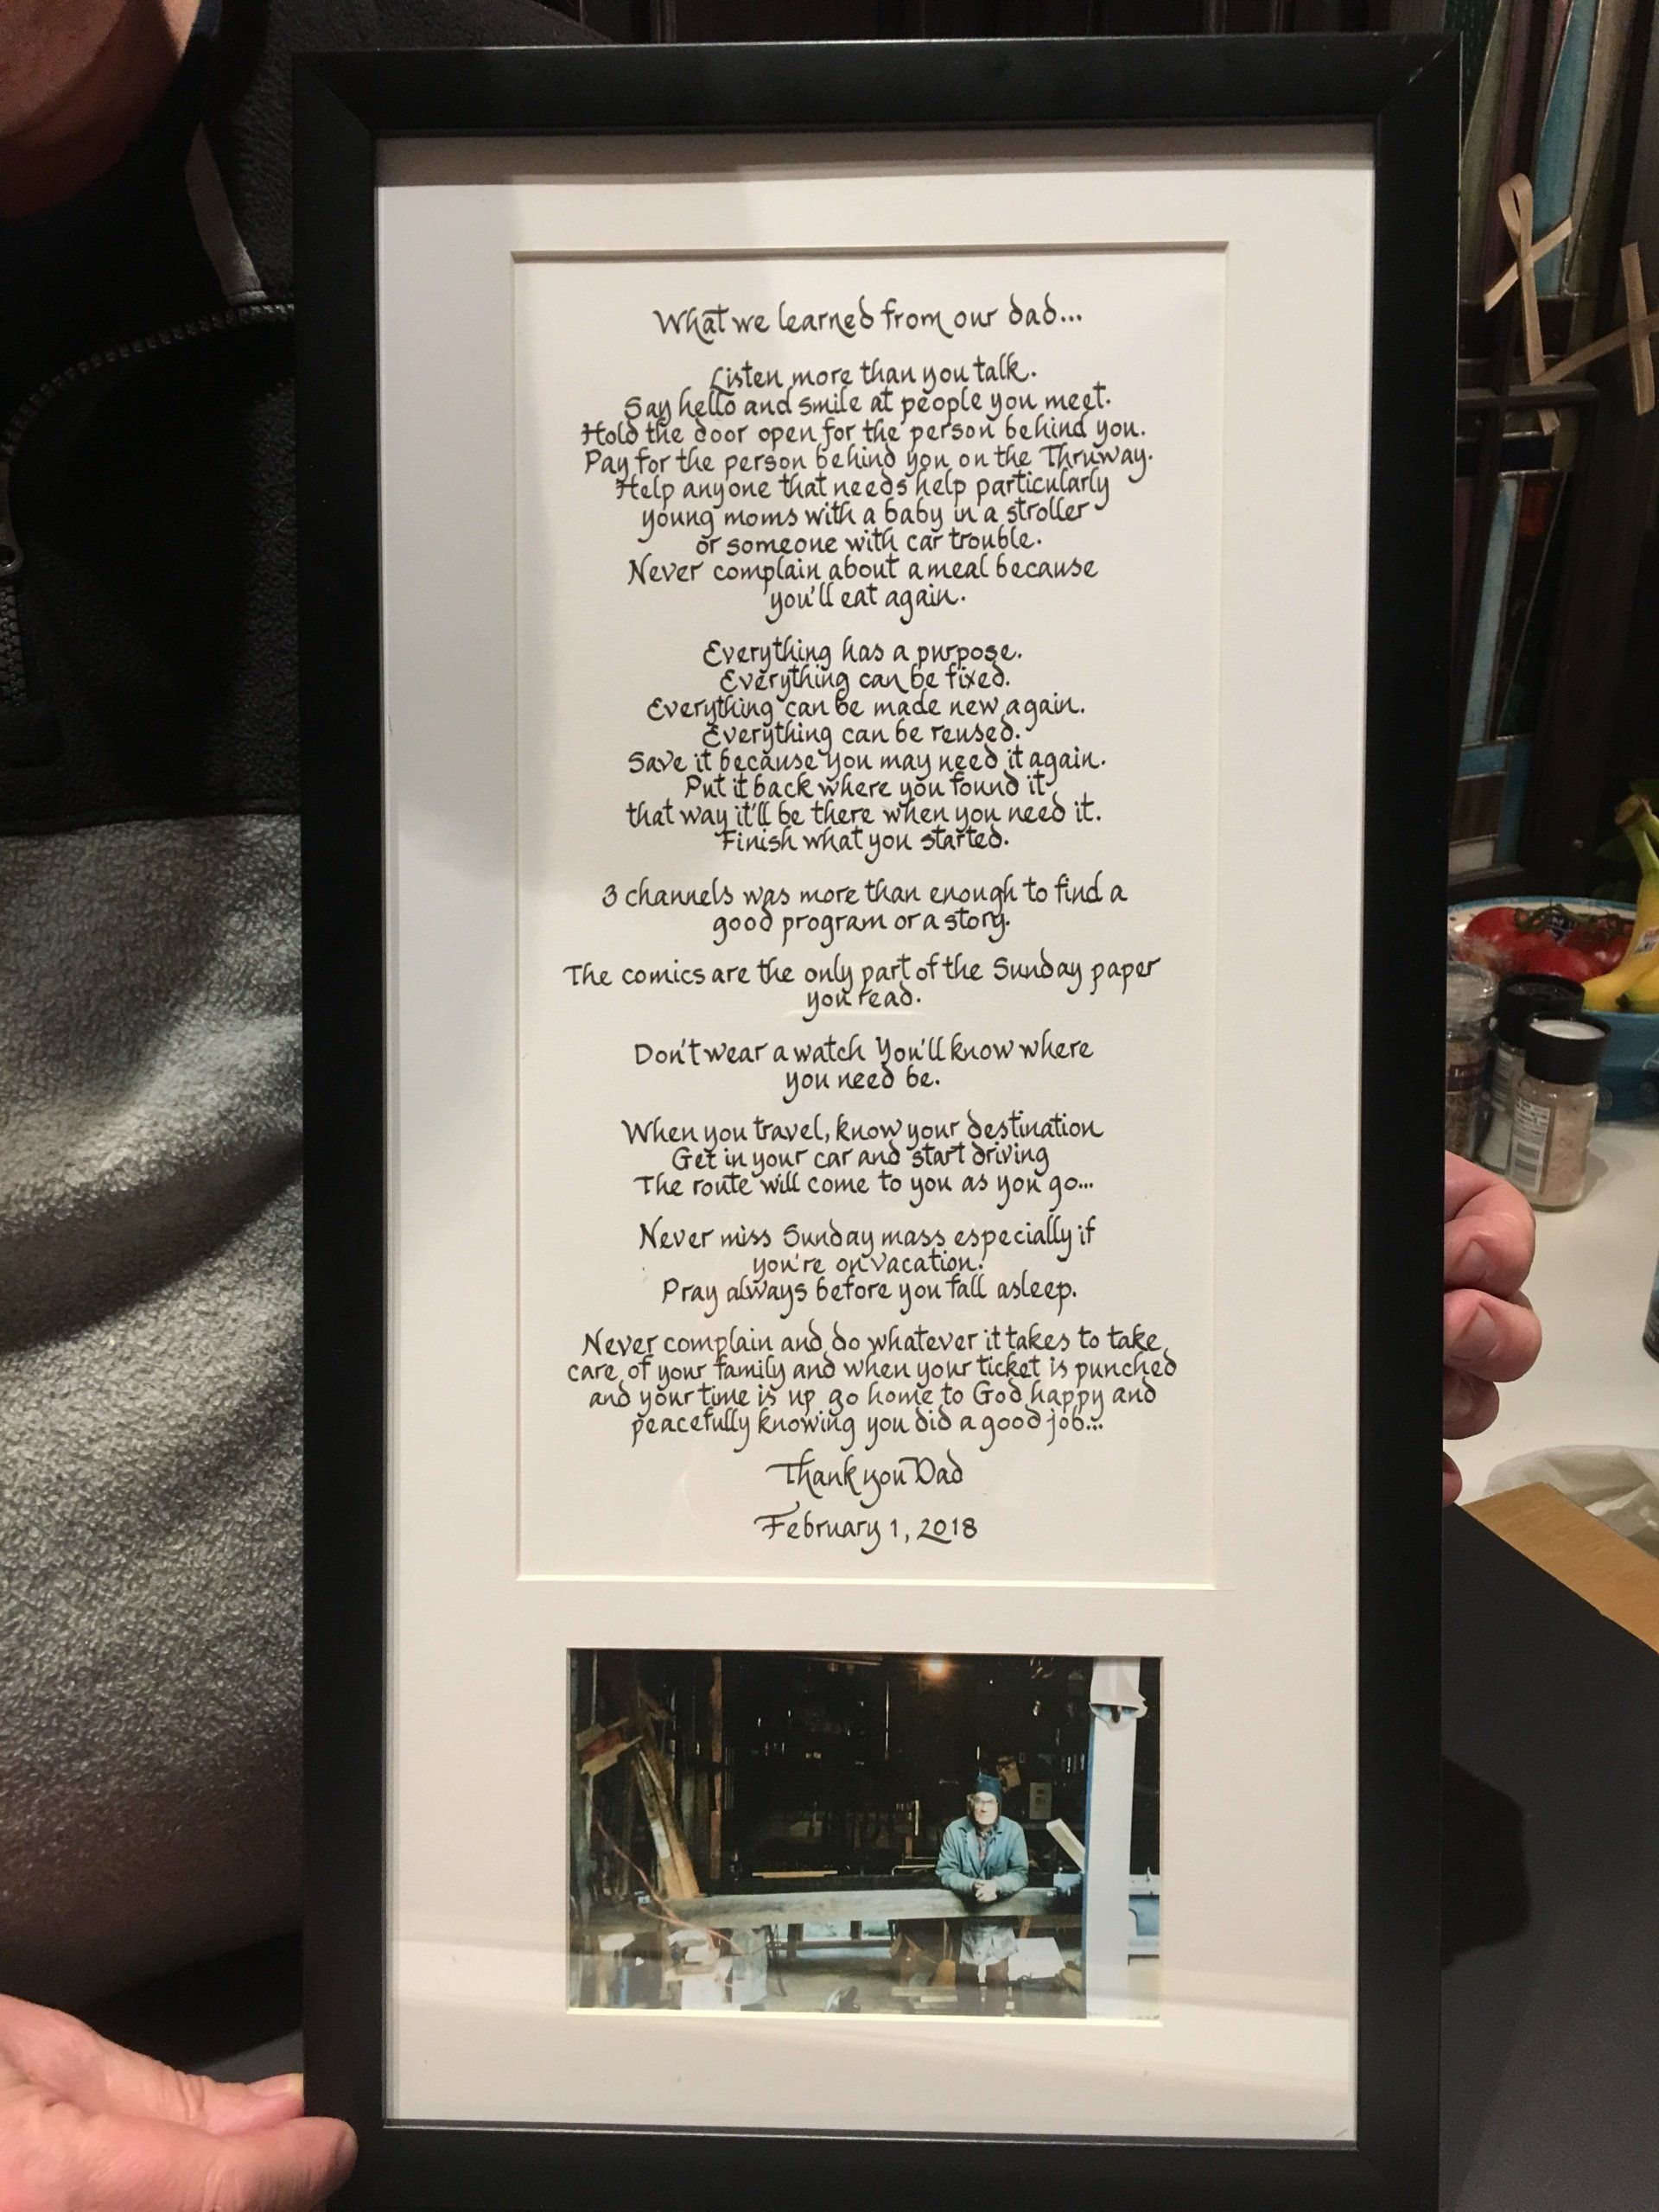 What we learned from our dad...
Listen more than you talk.
Say hello and smile at people you meet.
Hold the door open for the person behind you.
Pay for the person behind you on the Thruway.
Help anyone that needs help particularly
young moms with a baby in a stroller
or someone with car trouble.
Never complain about a meal because
you'll eat again.
Everything has a purpose.
Everything can be fixed.
Everything can be made new again.
Everything can be reused.
Save it because you may need it again.
Put it back where you found it
that way it'll be there when you need it.
Finish what you started.
3 channels was more than enough to find a
good program or a story.
The comics are the only part of the Sunday paper
you read.
Don't wear a watch You'll know where
you need be.
When you travel, know your destination
Get in your car and start driving
The route will come to you as you go...
Never miss Sunday mass especially if
you're on vacation.
Pray always before you fall asleep.
Never complain and do whatever it takes to take
care of your family and when your ticket is punched
and your time is up go home to God happy and
peacefully knowing you did a good job...
Thank you Dad
February 1, 2018